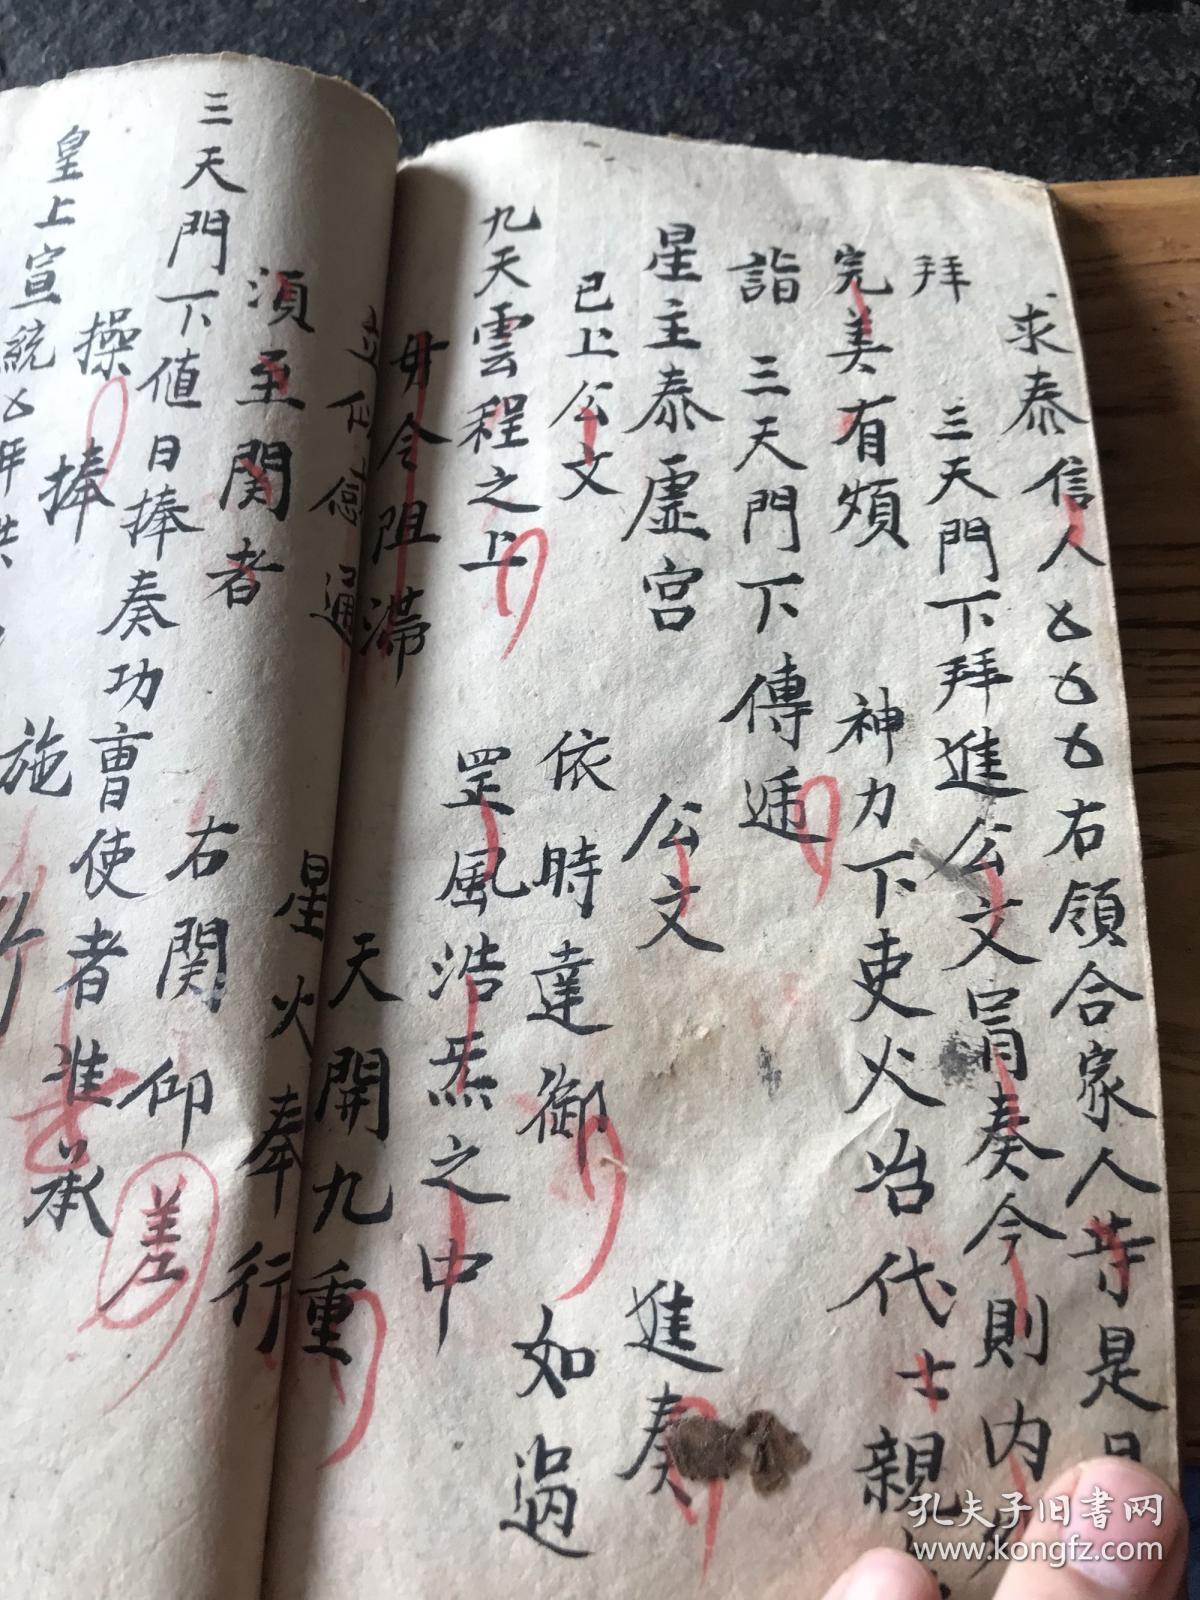 求泰信人厶厶厶右領合家人等是日
拜 三天門下拜進公文冐奏今則内外
完美有煩 神力下吏火冶代士親
詣 三天門下傳遞
星主泰虛宮 公文 進奏
已上公文 依時達御 如過
九天雲程之上 罡風浩炁之中
毋令阻滞 天開九重
立仰 通 星火奉行
須至関者 右関仰差
三天門下値日捧奏功曹使者進承
操捧 施行
皇上宣統厶年
孔夫子旧书网
www.kongfz.com